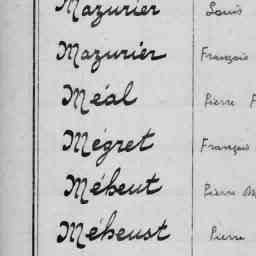 Mazurier Louis
Mazurier François
Méal Pierre F
Mégret François
Méheut Pierre M
Méheust Pierre